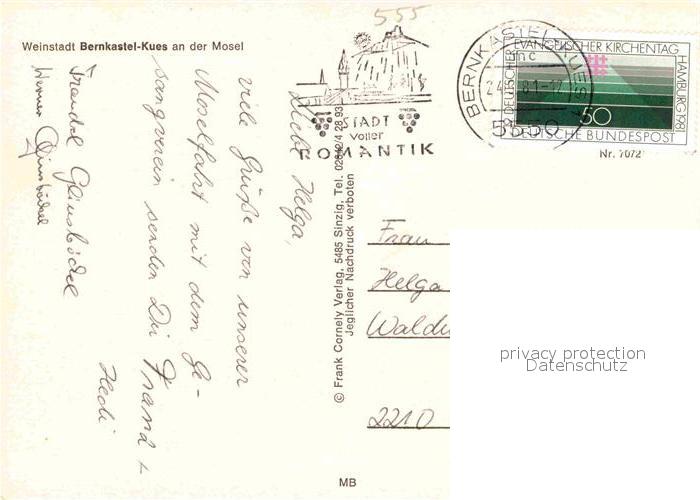 555
Weinstadt Bernkastel-Kues an der Mosel
STADT
voller
ROMANTIK
BERNKASTEL-KUES 1
nc
81-17
5550
DEUTSCHER EVANGELISCHER KIRCHENTAG HAMBURG 1981
50
DEUTSCHE BUNDESPOST
Nr. 7072
Liebe Helga,
viele Grüße von unserer
Moselfahrt mit dem Ge-
sangverein senden Dir
Hedi
Werner
© Frank Cornely Verlag, 5485 Sinzig, Tel. 02642/4 28 93
Jeglicher Nachdruck verboten
Frau
Helga
2210
privacy protection
Datenschutz
MB